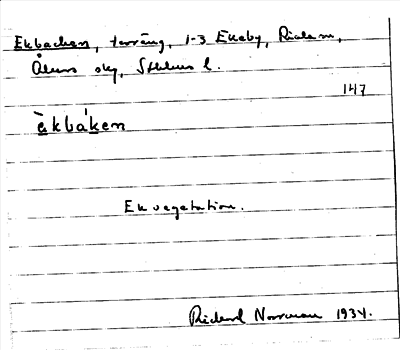 Ekbacken, terräng, 1-3 Ekeby, Riala sn,
Åkers skg, Sthlms l.
147
èkbáken
Ekvegetation.
Rickard Norrman 1934.